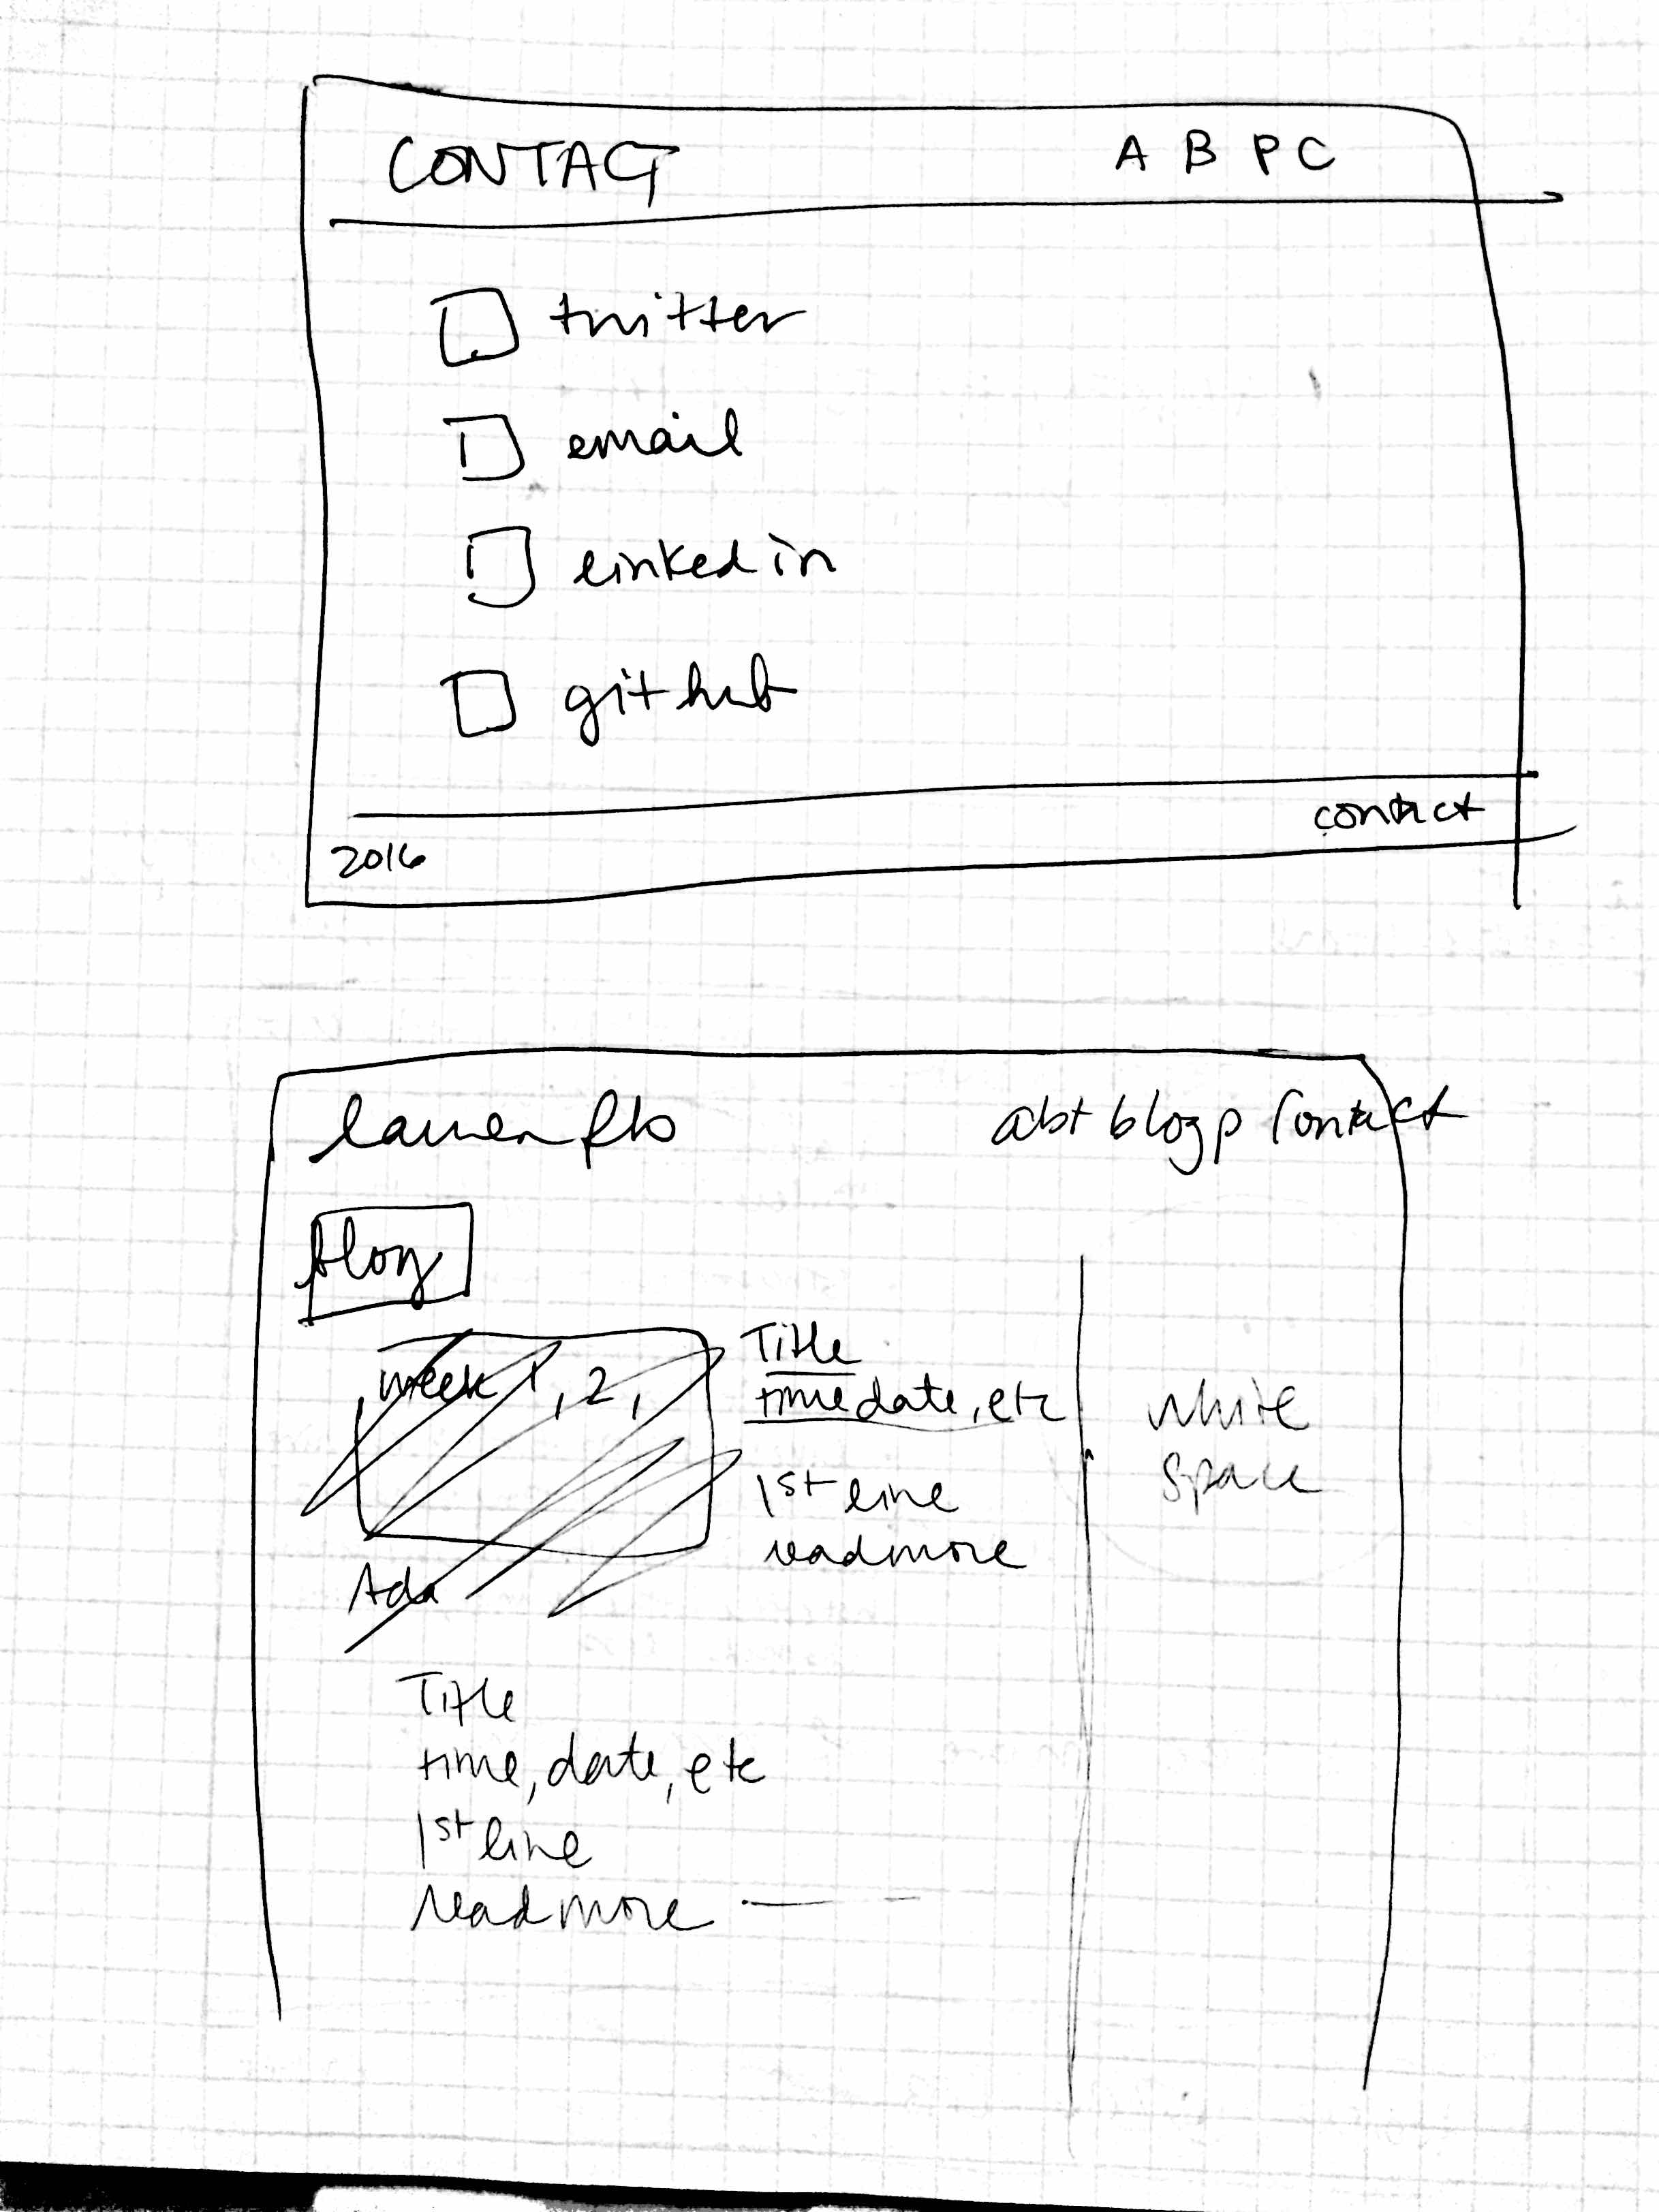 CONTACT A B P C
twitter
email
linkedin
github
contact
2016
lauren abt blog p Contact
blog
week 1, 2,
Title
time date, etc
1st line
read more
white
space
Ada
Title
time, date, etc
1st line
read more